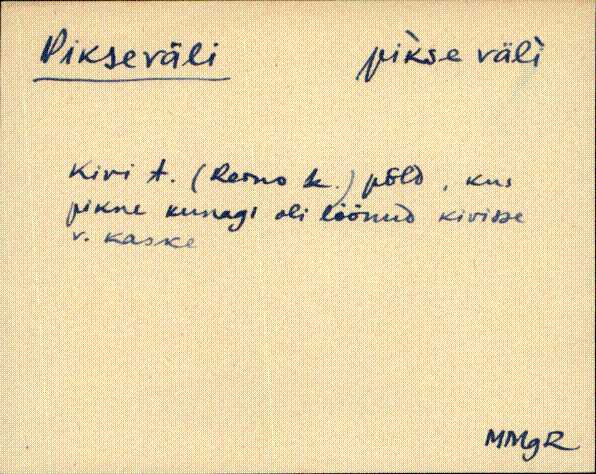 Pikseväli pìkse välì
Kivi t. (Reino k.) põld, kus
pikne kunagi oli löönud kivisse
v. kaske
MMgR